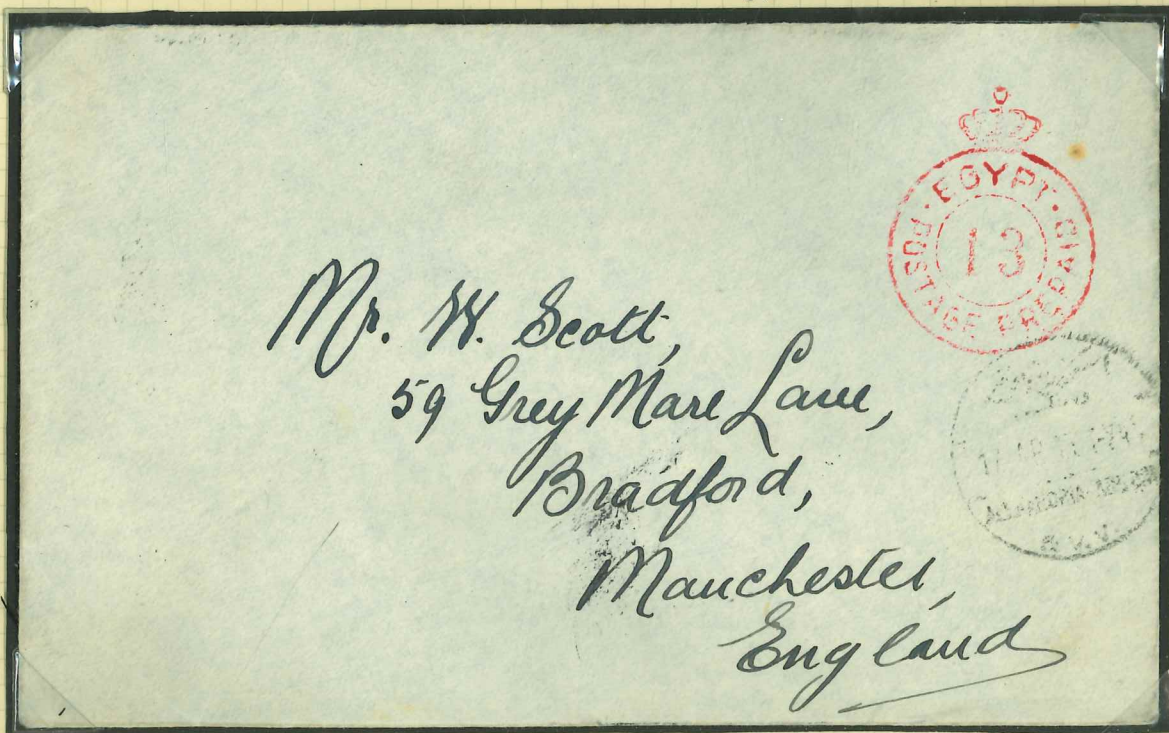 EGYPT
POSTAGE PREPAID
13
Mr. W. Scott,
59 Grey Mare Lane,
Bradford,
Manchester,
England